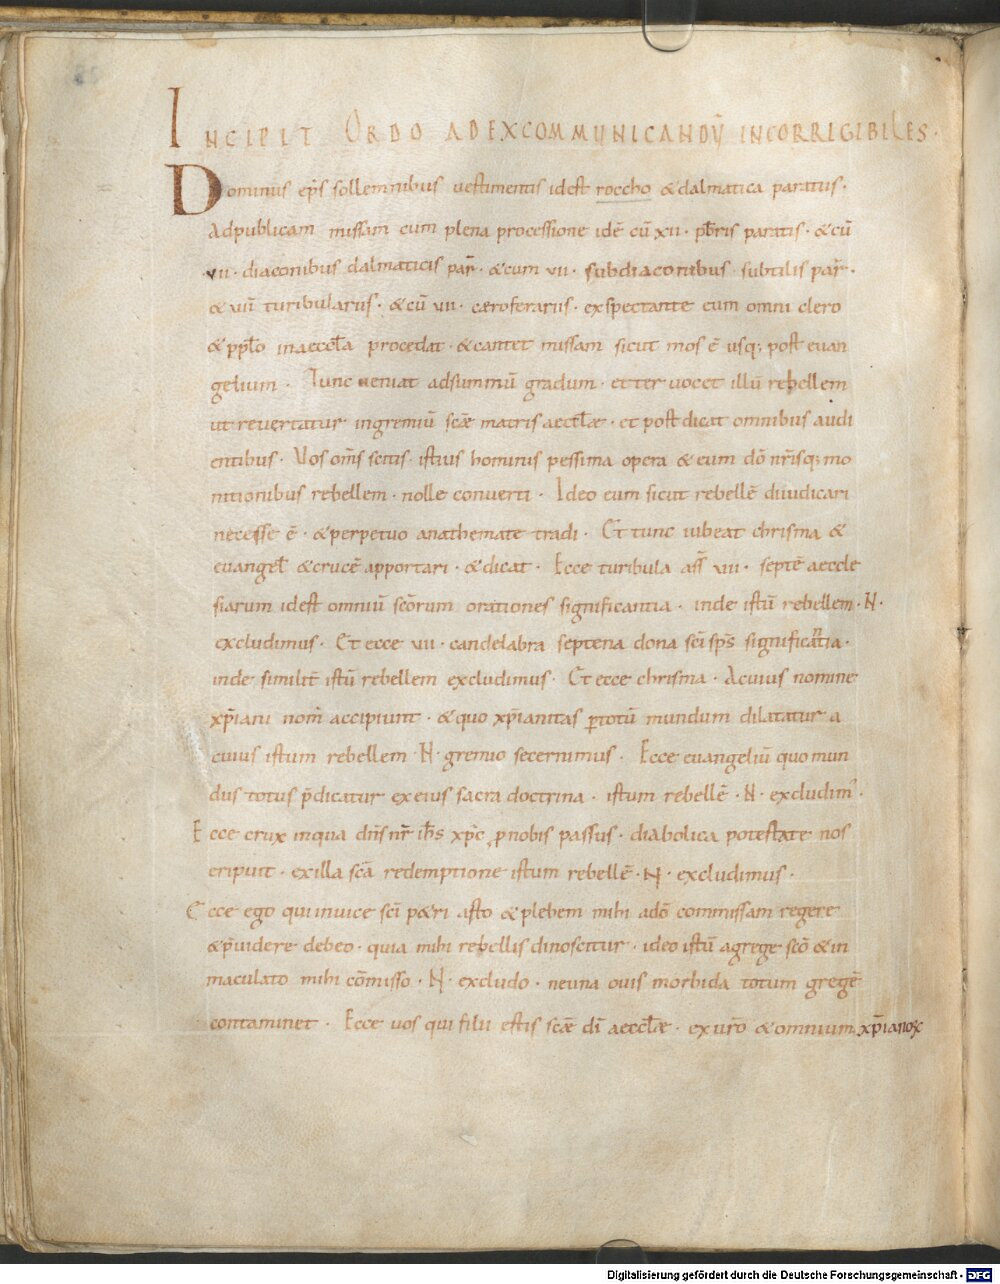 INCIPIT ORDO AD EXCOMMUNICANDŪ INCORRIGIBILES.
Dominus ep̄s sollemnibus vestimentis id est roccho & dalmatica paratus.
Ad publicam missam cum plena processione idē cū xii. pb̄ris paratis. & cū
vii. diaconibus dalmaticis par̄. & cum vii. subdiaconibus subtilis par̄.
& vii turibulariis. & cū vii. cæroferariis. exspectante cum omni clero
& pp̄lo in aeccl̄a procedat. & cantet missam sicut mos ē usq; post euan
gelium. Tunc veniat ad summū gradum. et ter vocet illū rebellem
ut revertatur in gremiū scǣ matris aeccl̄æ. et post dicat omnibus audi
entibus. Vos om̄s scitis istius hominis pessima opera & eum dō nr̄isq; mo
nitionibus rebellem. nolle converti. Ideo eum sicut rebellē diiudicari
necesse ē. & perpetuo anathemate tradi. Et tunc iubeat chrisma &
euangel̄ & crucē apportari. & dicat. Ecce turibula ass̄ vii. septē aeccle
siarum id est omniū scōrum orationes significantia. inde istū rebellem. N.
excludimus. Et ecce vii. candelabra septena dona sci sp̄s significantia.
inde similit̄ istū rebellem excludimus. Et ecce chrisma. A cuius nomine
xp̄iani nom̄ accipiunt. & quo xp̄ianitas p totū mundum dilatatur a
cuius istum rebellem. N. gremio secernimus. Ecce euangeliū quo mun
dus totus p̄dicatur ex eius sacra doctrina. istum rebellē. N. excludim'.
Ecce crux in qua dn̄s nr̄ ih̄s xp̄c p nobis passus. diabolica potestate nos
eripuit. ex illa scā redemptione istum rebellē. N. excludimus.
Ecce ego qui in vice sci p&ri asto & plebem mihi a dō commissam regere
& p̄videre debeo. quia mihi rebellis dinoscitur. ideo istū a grege scō & in
maculato mihi cōmisso. N. excludo. ne una ovis morbida totum gregē
contaminet. Ecce vos qui filii estis scǣ di aeccl̄æ. ex ur̄o & omnium xp̄ianoꝝ
Digitalisierung gefördert durch die Deutsche Forschungsgemeinschaft - DFG